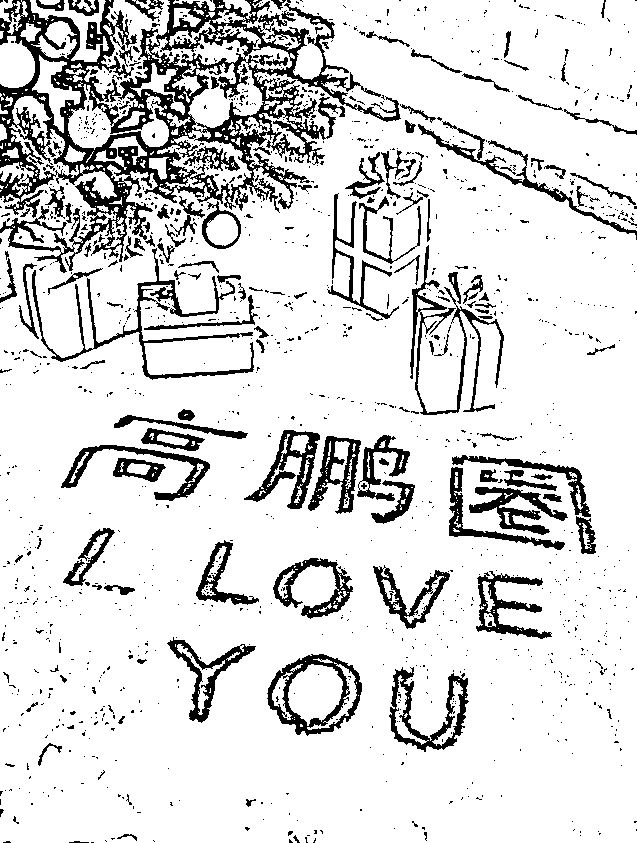 高鹏圈
L LOVE
YOU